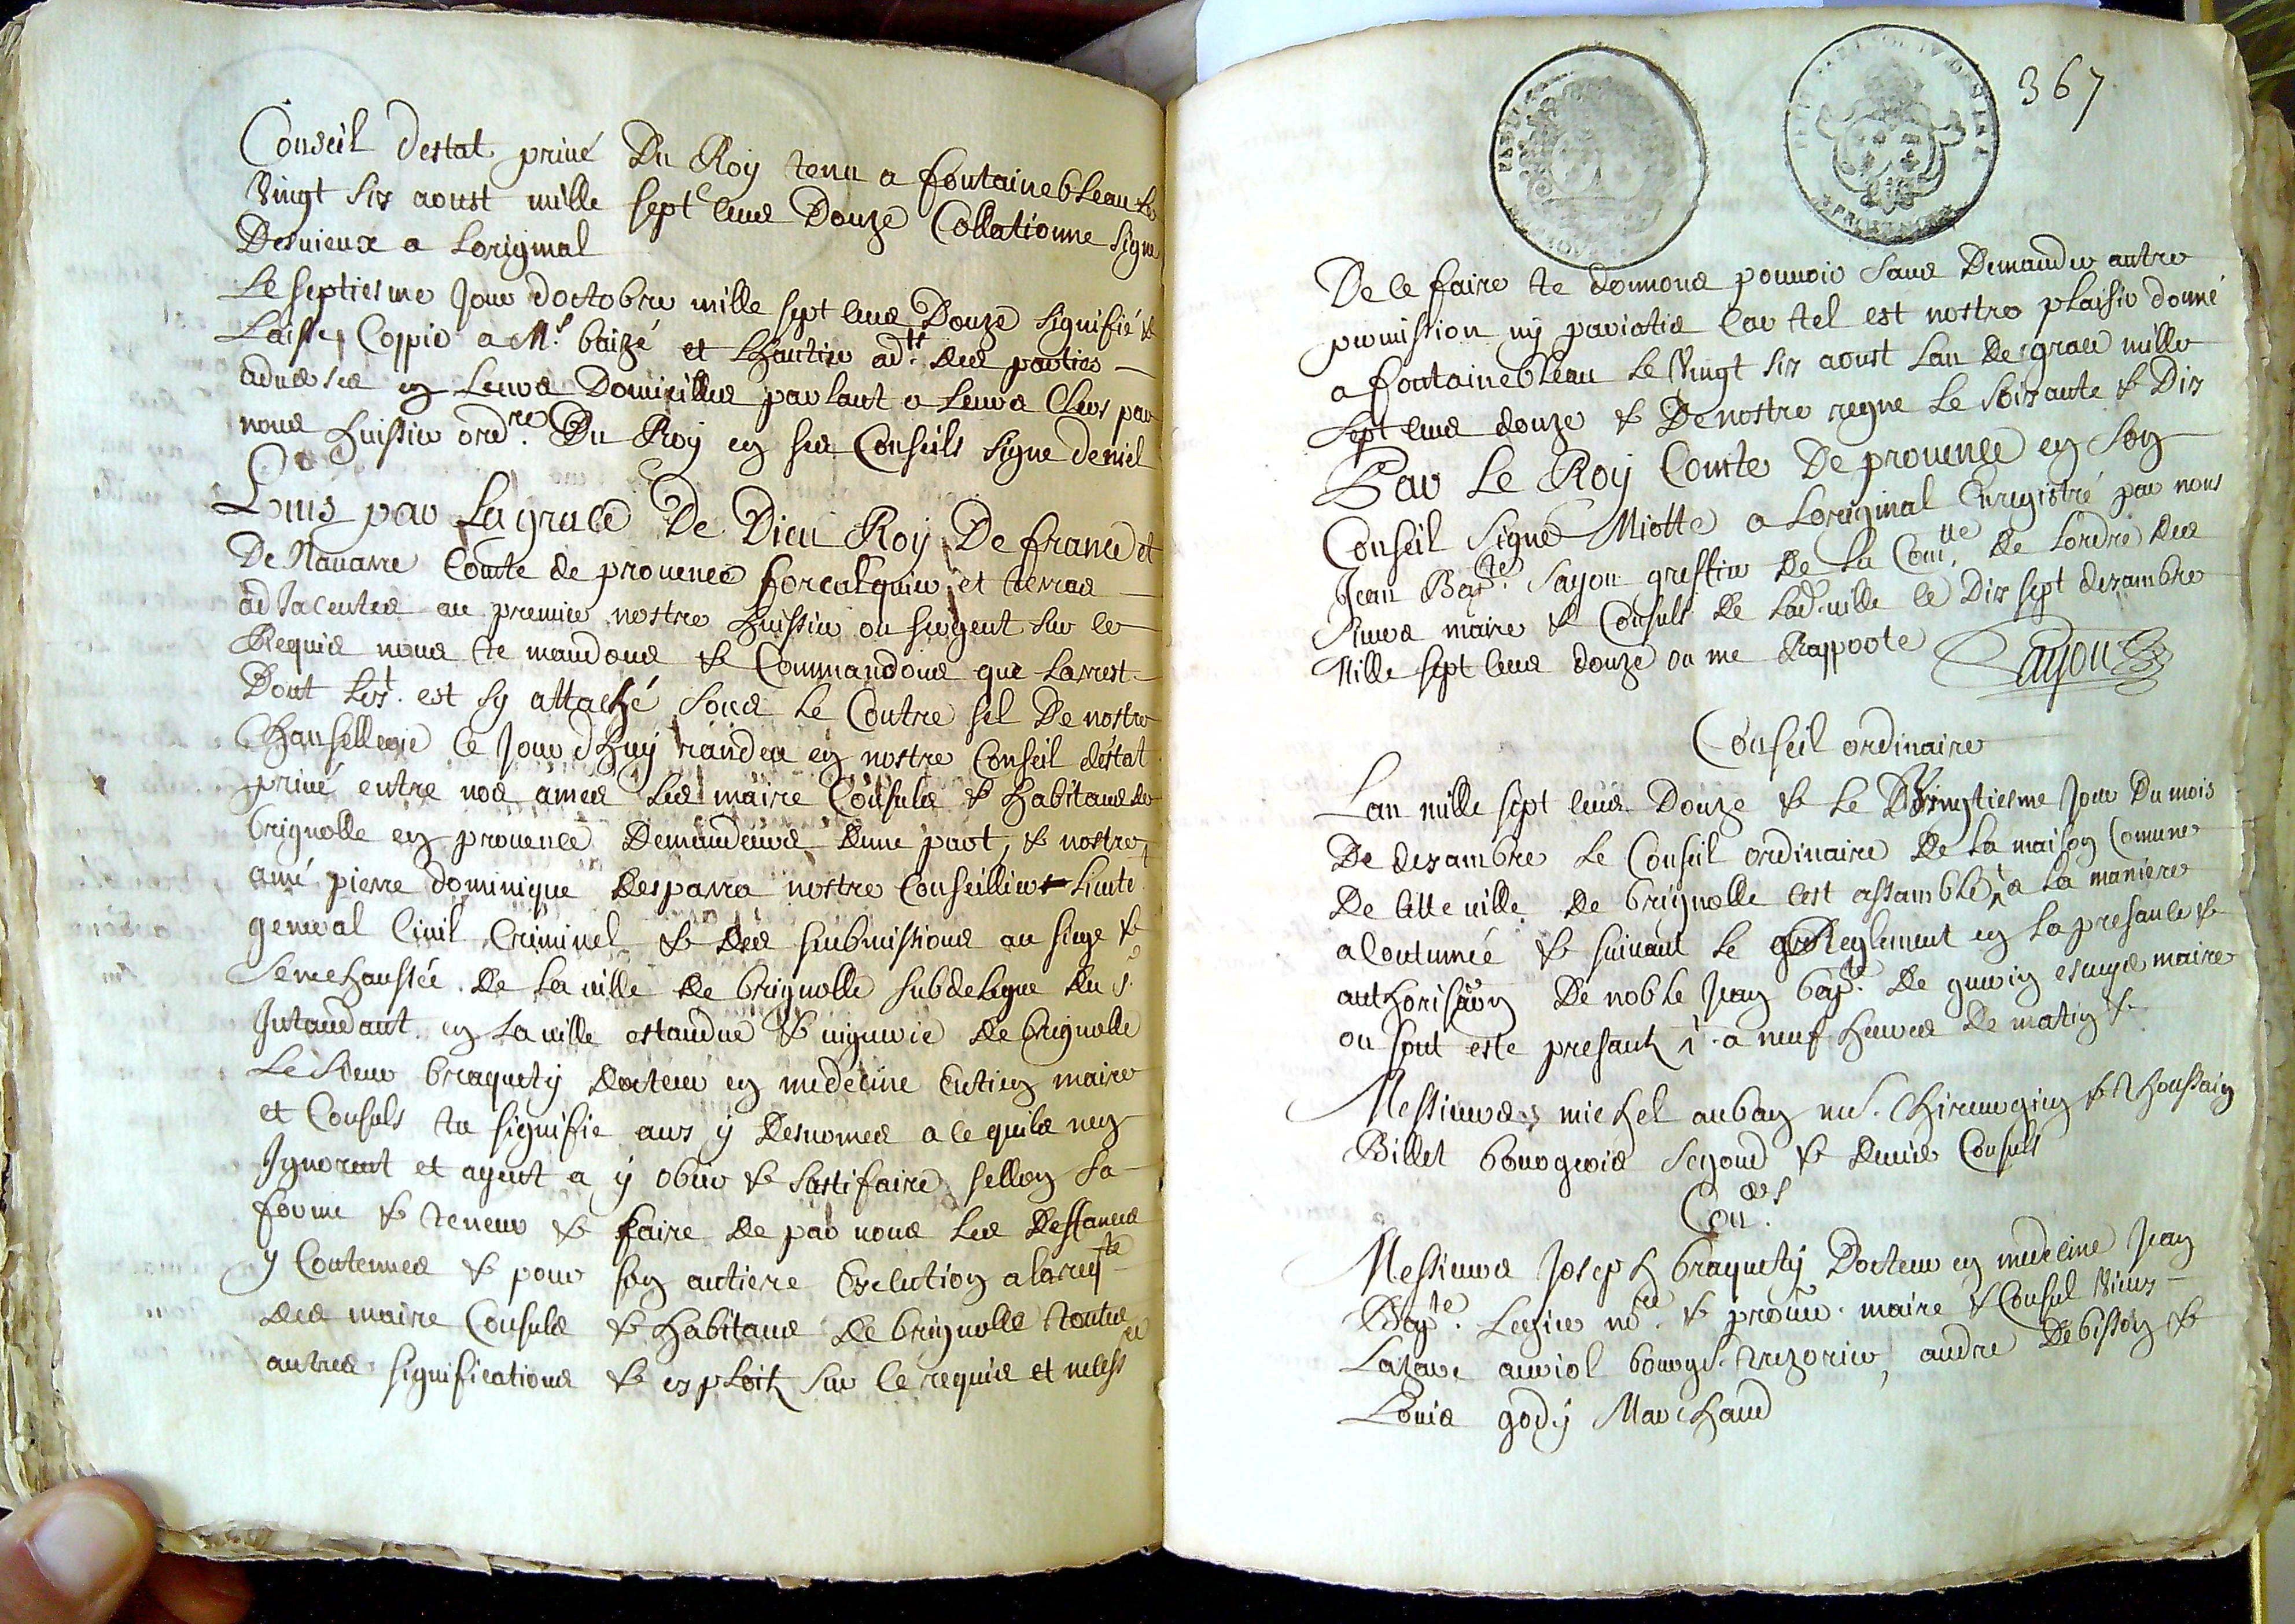 Conseil destat priué Du Roy tenu a fontainebleau Le
Vingt six aoust mille sept cens Douze Collationne signe
Desuieux a Loriginal
Le septiesme Jour doctobre mille sept cens Douze signifié &
Laisse Coppie a Mr. baizé et Lhautier adts. des parties
aduerses en Leurs Domicilles parlant a Leurs Clers par
nous huissier ordre. Du Roy en ses Conseils signe deniel
Louis par La grace De Dieu Roy De france et
De Nauarre Comte de prouence forcalquier et terres
adJacentes au premier nostre huissier ou sergent sur ce
Requis nous te mandons & Commandons que Larrest
Dont Lext. est sy attaché sous Le Contre sel De nostre
Chansellerie ce Jour dhuy randeu en nostre Conseil destat
priué entre nos ames Les maire Consuls & habitans de
brignolle en prouence Demandeurs dune part, & nostre
amé pierre dominique Desparra nostre Conseillier Liute
general Ciuil Criminel & des submissions au siege &
Senechaussée De La uille de brignolle subdelegue du s.
Intandant en La uille estandue & uiguerie de brignolle
Le sieur braquety docteur en medecine Entien maire
et Consuls tu signifie aux y Desnomes a ce quils nen
Ignorent et ayent a y obeir & sastifaire sellon sa
forme & teneur & faire de par nous Les deffances
y Contenues & pour son antiere Execution a la reqte
des maire Consuls & habitans de brignolle toutes
autres significations & exploits sur ce requis et necessres
367
De ce faire te donnons pouuoir sans Demander autre
permission ny pariatis Car tel est nostre plaisir donné
a fontainebleau Le Vingt six aoust Lan De grace mille
sept cens douze & De nostre regne Le soixante & Dix
Par Le Roy Comte De prouence en son
Conseil Signé Miotte a Loriginal Enregistré par nous
Jean Bapte. Sayou greffier De La Comtte. de Lordre des
sieurs maire & Consuls de Lad. uille ce Dix sept dezambre
Mille sept cens douze ou me Rapporte
Sayou
Conseil ordinaire
Lan mille sept cens Douze & Le Vingtiesme Jour Du mois
De dezambre Le Conseil ordinaire De La maison Comune
De cette uille De brignolle cest assamble a La maniere
acoutumée & suiuant Le Reglement en La presance &
authorisaon De noble Jean bapte. De guerin escuyer maire
ou sont este presants a neuf heures De matin &
Messieurs michel auban me. Chirurgien & thoussain
Billet bourgeois segond & dernier Consuls
Conders.
Messieurs Joseph braquety Docteur en medecine Jean
Bapte. Legier nore. & procur. maire & Consul Vieux
Lazare auriol bourgs. trezorier, andre Debisson &
Louis gody Marchand